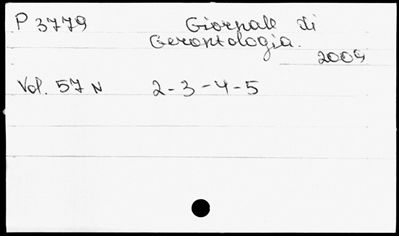 P 3779 Giornale di
Gerontologia.
2009
Vol. 57 N 2-3-4-5